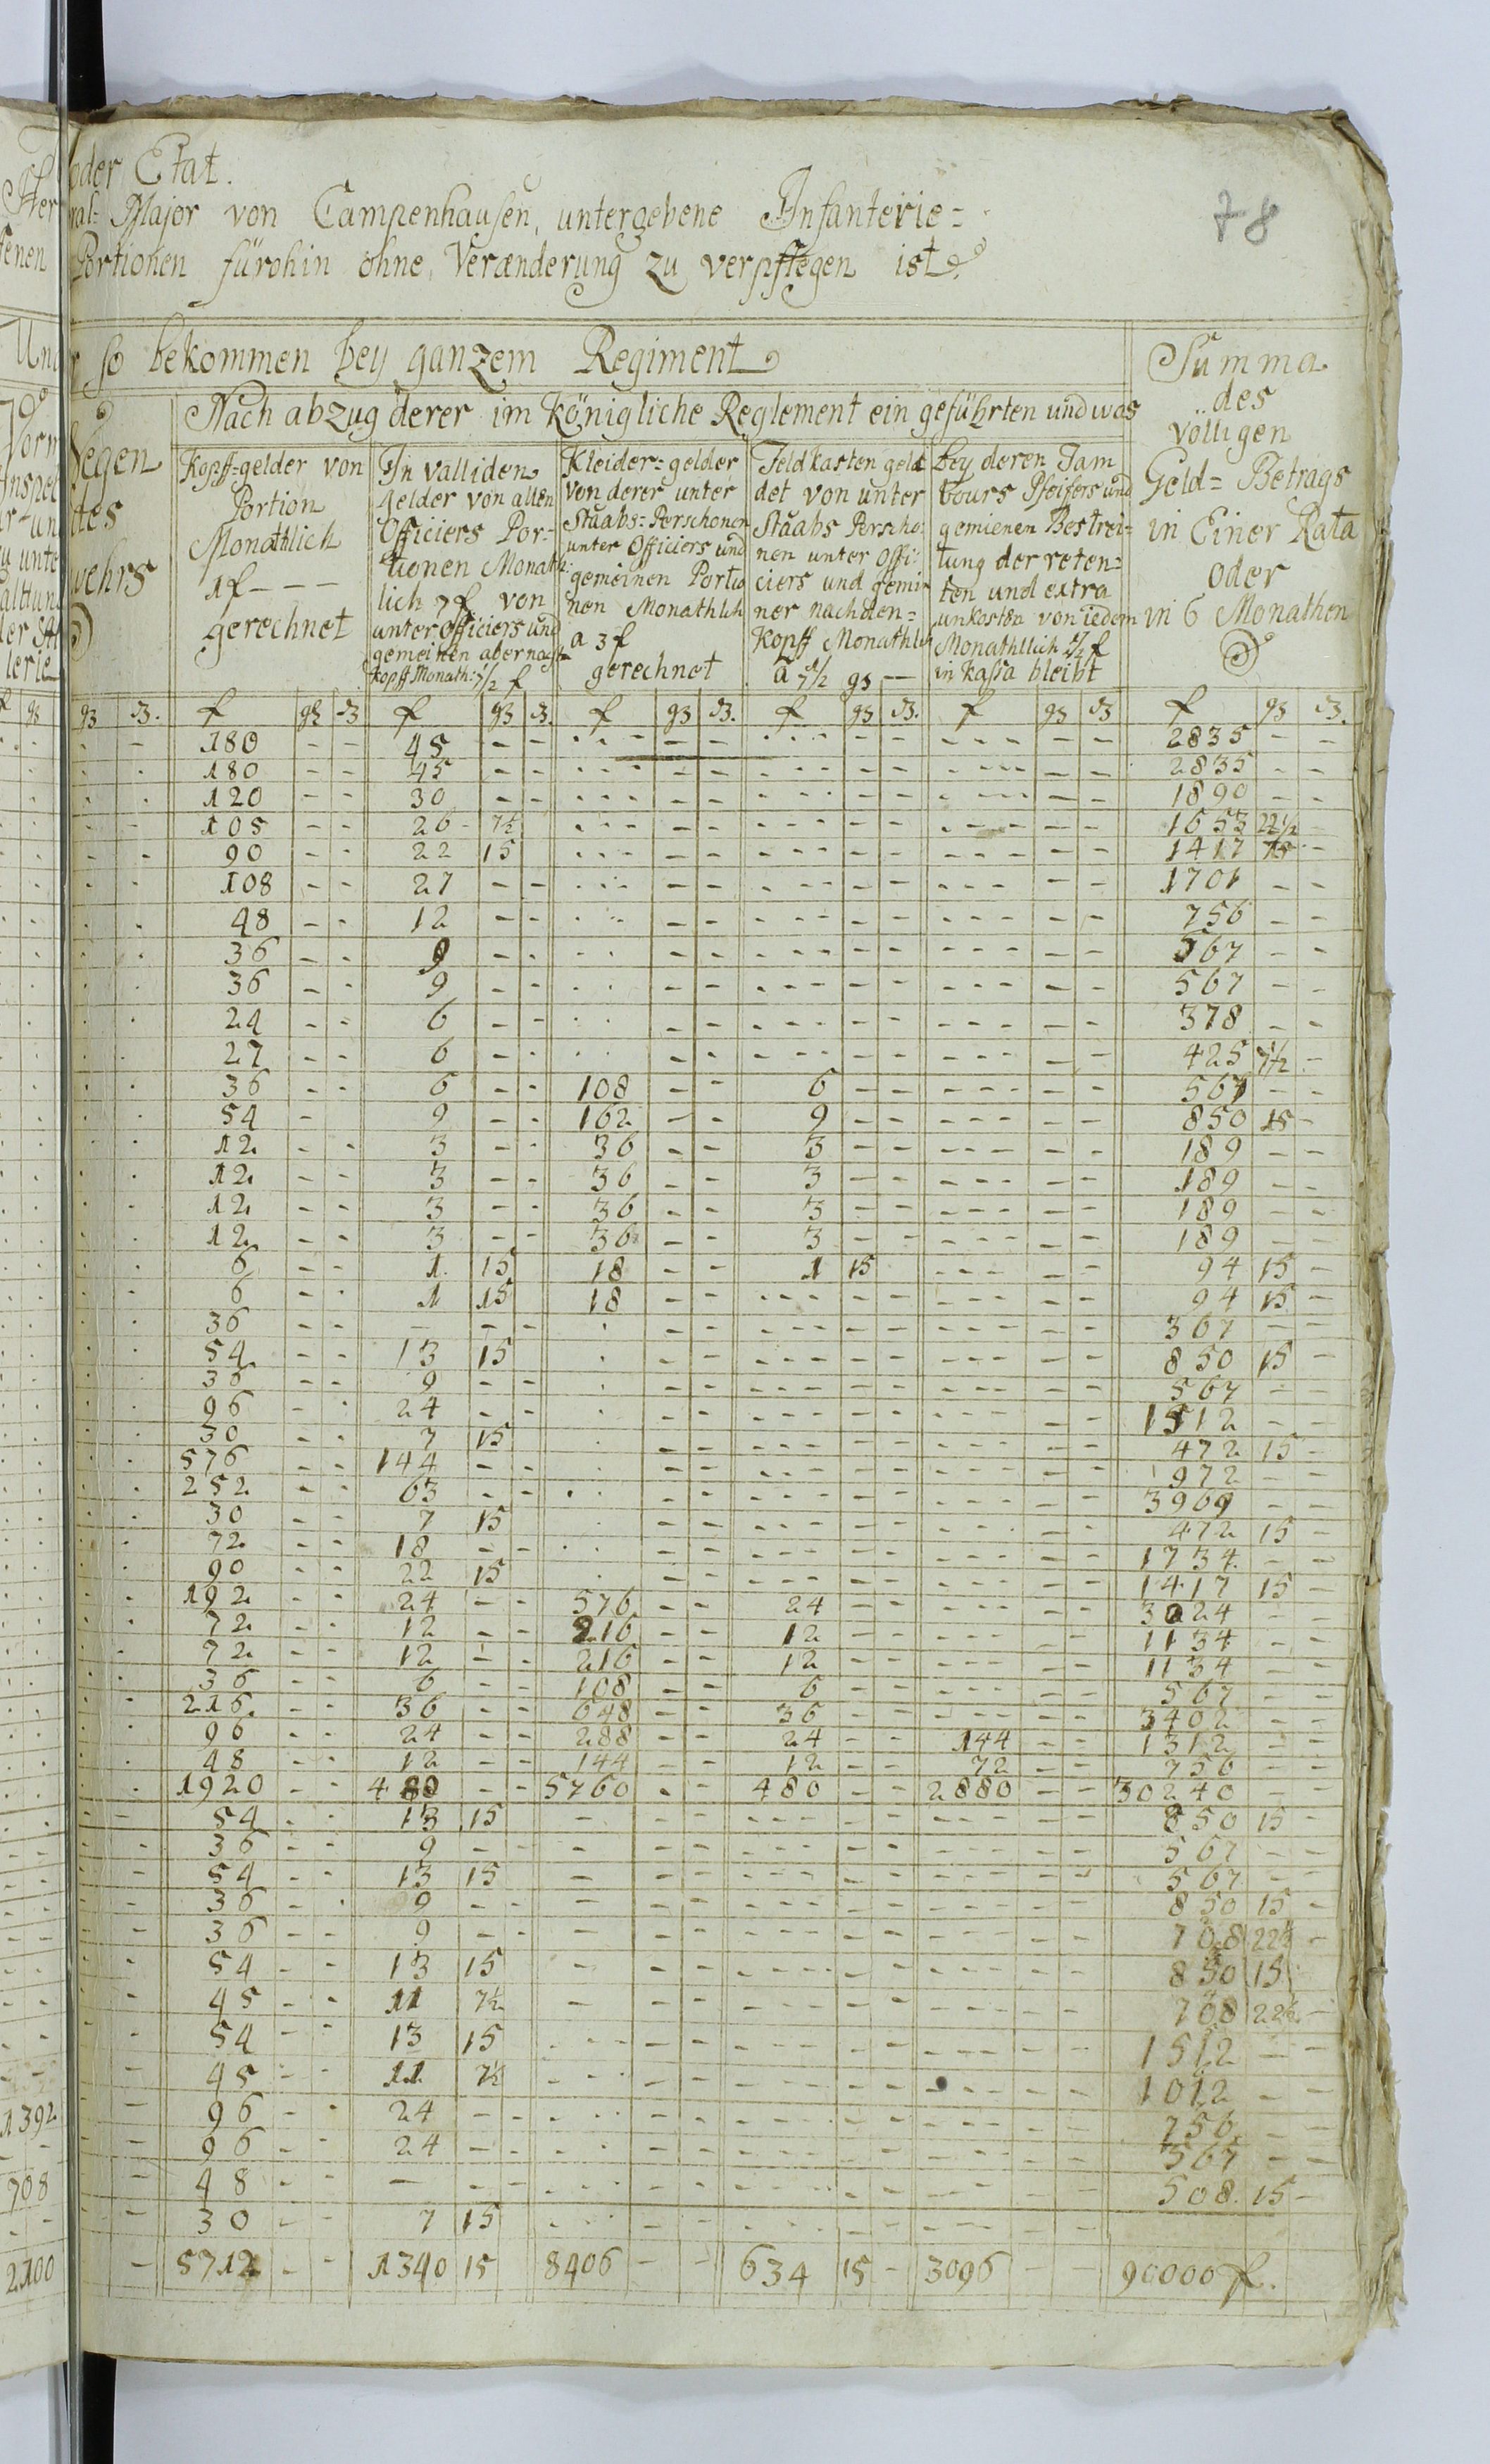 78
oder Etat.
Major von Campenhausen, untergebene Infanterie=
Portionen fürohin ohne Verænderung zu verpflegen ist.
so bekommen bey ganzem Regiment
Summa
des
völligen
Geld= Betrags
in Einer Rata
oder
in 6 Monathen
Nach abzug derer im Königliche Reglement ein geführten und was
Kopff=gelder von
Portion
Monathlich
1f - - -
gerechnet
In validen
gelder von allen
Officiers Por=
tionen Monath
lich 7 f von
unter Officiers und
gemeinen aber nach
Kopff Monath: 7½ f
Kleider=gelder
von derer unter
Staabs=Perschonen
unter Officiers und
gemeinen Portio
nen Monathlich
a 3 f
gerechnet
Feldkasten geld
det von unter
Staabs Perscho:
nen unter Offi:
ciers und gemi=
ner nach den=
Kopff Monathlich
a 7½ gs —
bey deren Tam
bours Pfeifers und
gemienen Bestrei=
tung der reten=
ten und extra
unkosten von iedem
Monathllich ½ f
in Kassa bleibt
180 - - 45 - - 2835 - -
180 - - 45 - - 2835 - -
120 - - 30 - - 1890 - -
105 - - 26 7½ 1653 22½ -
90 - - 22 15 1417 15 -
108 - - 27 - - 1701 - -
48 - - 12 - - 756 - -
36 - - 9 - - 567 - -
36 - - 9 - - 567 - -
24 - - 6 - - 378 - -
27 - - 6 - - 425 7½ -
36 - - 6 - - 108 - - 6 - - 567 - -
54 - 9 - - 162 - - 9 - - 850 15 -
12 - - 3 - - 36 - - 3 - - 189 - -
12 - - 3 - - 36 - - 3 - - 189 - -
12 - - 3 - - 36 - - 3 - - 189 - -
12 - - 3 - - 36 - - 3 - - 189 - -
6 - - 1 15 18 - - 1 15 94 15 -
6 - - 1 15 18 - - 94 15 -
36 - - - - - 367 - -
54 - - 13 15 850 15 -
36 - - 9 - - 567 - -
96 - - 24 - - 1512 - -
30 - - 7 15 472 15 -
576 - - 144 - - 972 - -
252 - - 63 - - 3969 - -
30 - - 7 15 472 15 -
72 - - 18 - - 1734 - -
90 - - 22 15 1417 15 -
192 - - 24 - - 576 - - 24 - - 3024 - -
72 - - 12 - - 216 - - 12 - - 1134 - -
72 - - 12 - - 216 - - 12 - - 1134 - -
36 - - 6 - - 108 - - 6 - - 567 - -
216 - - 36 - - 648 - - 36 - - 3402 - -
96 - - 24 - - 288 - - 24 - - 144 - - 1312 - -
48 - - 12 - - 144 - - 12 - - 72 - - 756 - -
1920 - - 480 - - 5760 - - 480 - - 2880 - - 30240 - -
54 - - 13 15 850 15 -
36 - - 9 - - 567 - -
54 - - 13 15 567 - -
36 - - 9 - - 850 15 -
36 - - 9 - - 708 22½ -
54 - - 13 15 850 15
45 - - 11 7½ 708 22½ -
54 - - 13 15 1512 - -
45 - - 11 7½ 1012 - -
96 - - 24 - - 756 - -
96 - - 24 - - 567 - -
48 - - - - - 508 15 -
30 - - 7 15
5712 - - 1340 15 8406 - - 634 15 - 3096 - - 90000 f.
1392
708
2100